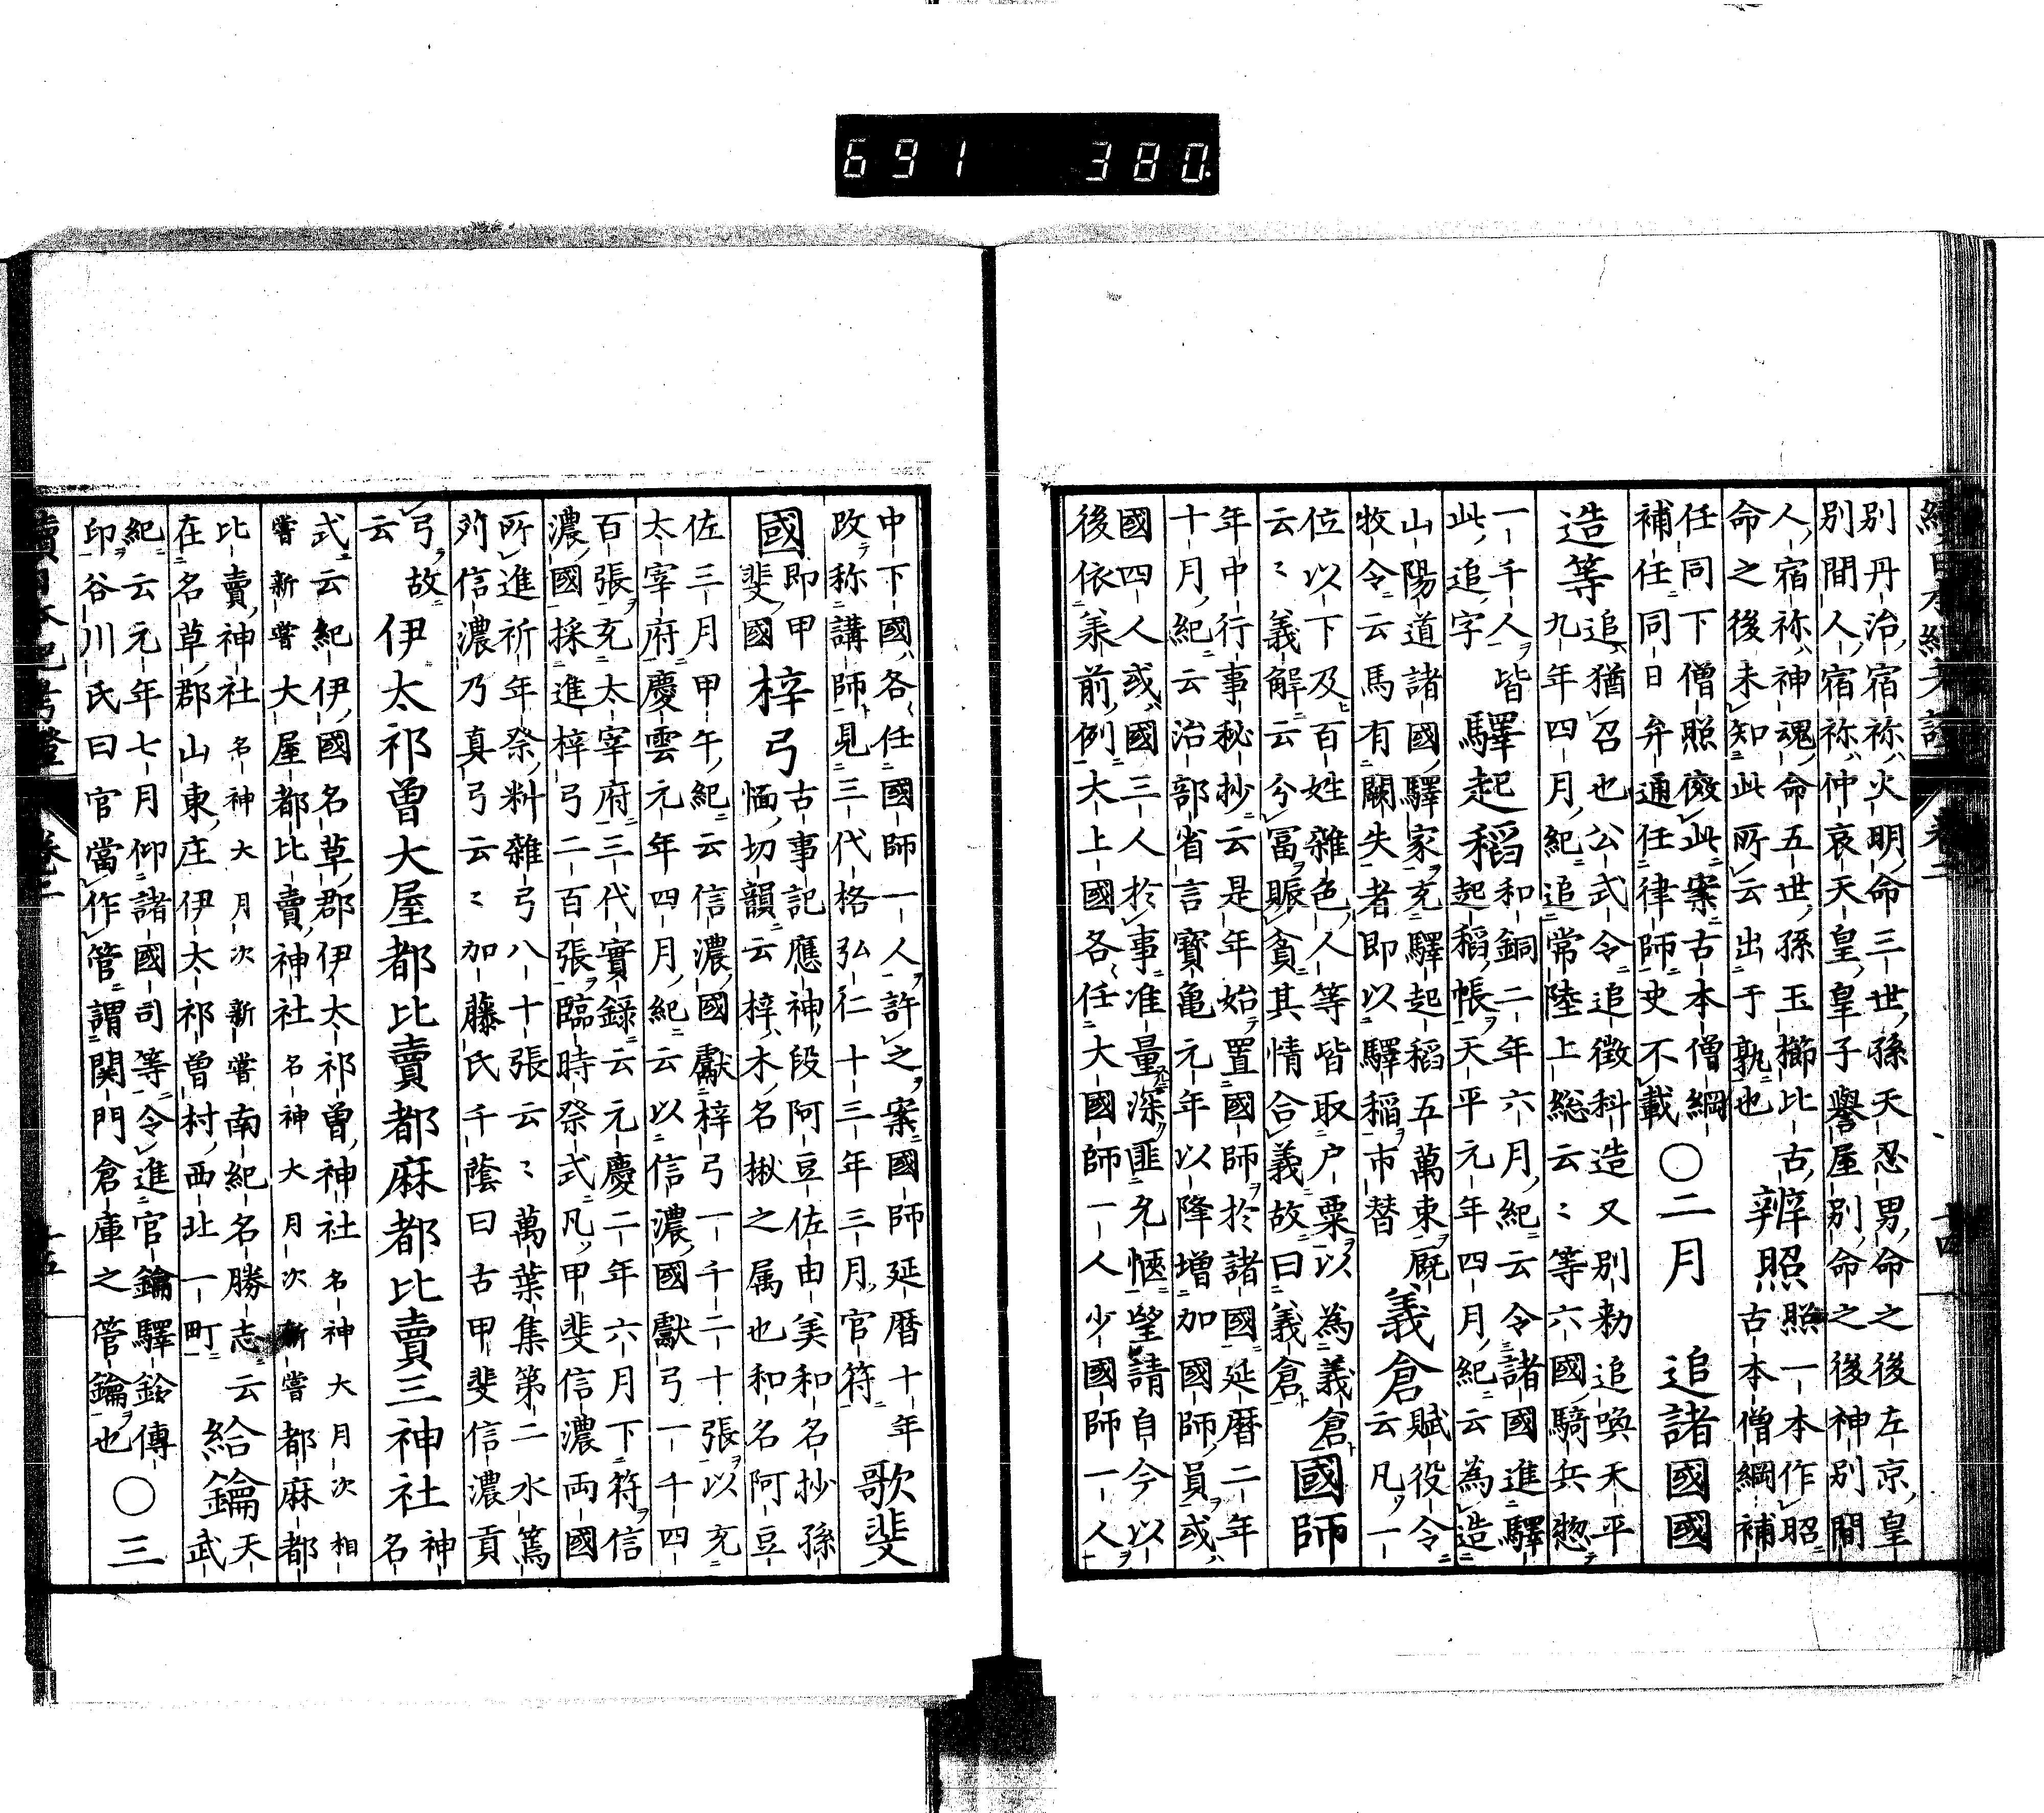 續日本紀考證 卷二 十四
別丹治宿祢火明命三世孫天忍男命之後左京皇
別間人宿祢仲哀天皇皇子譽屋別命之後神別間
人宿祢神魂命五世孫玉櫛比古
命之後未知此所云出于孰也
辨照
照一本作昭
古本僧綱補
任同下僧照儆此案古本僧綱
補任同日弁通任律師史不載
〇二月 追諸國國
造等
追猶召也公式令追徴科造又別勅追喚天平
九年四月紀追常陸上総云〻等六國騎兵惣
一千人皆
此追字
驛起稻
和銅二年六月紀云令諸國進驛
起稻帳天平元年四月紀云為造
山陽道諸國驛家充驛起稻五萬束厩
牧令云馬有闕失者即以驛稻市替
義倉
賦役令
云凡一
位以下及百姓雜色人等皆取户粟以為義倉
云〻義解云分冨賑貧其情合義故曰義倉
國師
年中行事秘抄云是年始置國師於諸國延暦二年
十月紀云治部省言寳亀元年以降増加國師員或
國四人或國三人於事准量深匪允愜望請自今以
後依羕前例大上國各任大國師一人少國師一人
中下國各任國師一人許之案國師延暦十年
改称講師見三代格弘仁十三年三月官符
歌斐
國
即甲
斐國
梓弓
古事記應神段阿豆佐由美和名抄孫
愐切韻云梓木名楸之属也和名阿豆
佐三月甲午紀云信濃國獻梓弓一千二十張以充
太宰府慶雲元年四月紀云以信濃國獻弓一千四
百張充太宰府三代實録云元慶二年六月下符信
濃國採進梓弓二百張臨時祭式凡甲斐信濃両國
所進祈年祭料雜弓八十張云〻萬葉集第二水篶
苅信濃乃真弓云〻加藤氏千蔭曰古甲斐信濃貢
弓故
云
伊太祁曽大屋都比賣都麻都比賣三神社
神
名
式云紀伊國名草郡伊太祁曽神社名神大月次相
嘗新嘗大屋都比賣神社名神大月次新嘗都麻都
比賣神社名神大月次新嘗南紀名勝志云
在名草郡山東庄伊太祁曽村西北一町
給鑰
天
武
紀云元年七月仰諸國司等令進官鑰驛鈴傳
印谷川氏曰官當作管謂関門倉庫之管鑰也
〇三
續日本紀考證 卷二 十五